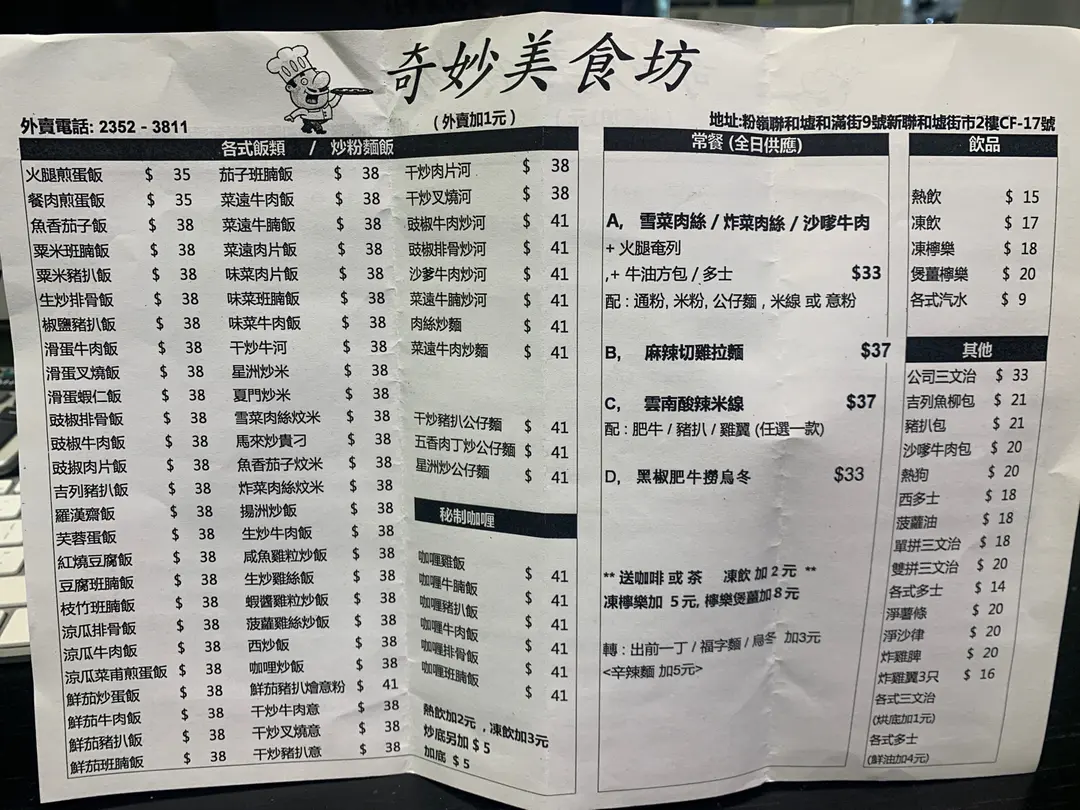 奇妙美食坊
外賣電話: 2352 - 3811
(外賣加1元)
地址:粉嶺聯和墟和滿街9號新聯和墟街市2樓CF-17號
各式飯類 / 炒粉麵飯
火腿煎蛋飯 $ 35
餐肉煎蛋飯 $ 35
魚香茄子飯 $ 38
粟米班腩飯 $ 38
粟米豬扒飯 $ 38
生炒排骨飯 $ 38
椒鹽豬扒飯 $ 38
滑蛋牛肉飯 $ 38
滑蛋叉燒飯 $ 38
滑蛋蝦仁飯 $ 38
豉椒排骨飯 $ 38
豉椒牛肉飯 $ 38
豉椒肉片飯 $ 38
吉列豬扒飯 $ 38
羅漢齋飯 $ 38
芙蓉蛋飯 $ 38
紅燒豆腐飯 $ 38
豆腐班腩飯 $ 38
枝竹班腩飯 $ 38
涼瓜排骨飯 $ 38
涼瓜牛肉飯 $ 38
涼瓜菜甫煎蛋飯 $ 38
鮮茄炒蛋飯 $ 38
鮮茄牛肉飯 $ 38
鮮茄豬扒飯 $ 38
鮮茄班腩飯 $ 38
茄子班腩飯 $ 38
菜遠牛肉飯 $ 38
菜遠牛腩飯 $ 38
菜遠肉片飯 $ 38
味菜肉片飯 $ 38
味菜班腩飯 $ 38
味菜牛肉飯 $ 38
干炒牛河 $ 38
星洲炒米 $ 38
夏門炒米 $ 38
雪菜肉絲炆米 $ 38
馬來炒貴刁 $ 38
魚香茄子炆米 $ 38
炸菜肉絲炆米 $ 38
揚洲炒飯 $ 38
生炒牛肉飯 $ 38
咸魚雞粒炒飯 $ 38
生炒雞絲飯 $ 38
蝦醬雞粒炒飯 $ 38
菠蘿雞絲炒飯 $ 38
西炒飯 $ 38
咖哩炒飯 $ 38
鮮茄豬扒燴意粉 $ 41
干炒牛肉意 $ 38
干炒叉燒意 $ 38
干炒豬扒意 $ 38
干炒肉片河 $ 38
干炒叉燒河 $ 38
豉椒牛肉炒河 $ 41
豉椒排骨炒河 $ 41
沙爹牛肉炒河 $ 41
菜遠牛腩炒河 $ 41
肉絲炒麵 $ 41
菜遠牛肉炒麵 $ 41
干炒豬扒公仔麵 $ 41
五香肉丁炒公仔麵 $ 41
星洲炒公仔麵 $ 41
秘制咖喱
咖喱雞飯 $ 41
咖喱牛腩飯 $ 41
咖喱豬扒飯 $ 41
咖喱牛肉飯 $ 41
咖喱排骨飯 $ 41
咖喱班腩飯 $ 41
熱飲加2元 , 凍飲加3元
炒底另加 $ 5
加底 $ 5
常餐 (全日供應)
A, 雪菜肉絲 / 炸菜肉絲 / 沙嗲牛肉
+ 火腿奄列
,+ 牛油方包 / 多士 $33
配 : 通粉, 米粉, 公仔麵 , 米線 或 意粉
B, 麻辣切雞拉麵 $37
C, 雲南酸辣米線 $37
配 : 肥牛 / 豬扒 / 雞翼 (任選一款)
D, 黑椒肥牛撈烏冬 $33
** 送咖啡 或 茶 凍飲 加 2 元 **
凍檸樂加 5 元, 檸樂煲薑加 8 元
轉 : 出前一丁 / 福字麵 / 烏冬 加3元
<辛辣麵 加5元>
飲品
熱飲 $ 15
凍飲 $ 17
凍檸樂 $ 18
煲薑檸樂 $ 20
各式汽水 $ 9
其他
公司三文治 $ 33
吉列魚柳包 $ 21
豬扒包 $ 21
沙嗲牛肉包 $ 20
熱狗 $ 20
西多士 $ 18
菠蘿油 $ 18
單拼三文治 $ 18
雙拼三文治 $ 20
各式多士 $ 14
淨薯條 $ 20
淨沙律 $ 20
炸雞脾 $ 20
炸雞翼3只 $ 16
各式三文治
(烘底加1元)
各式多士
(鮮油加4元)